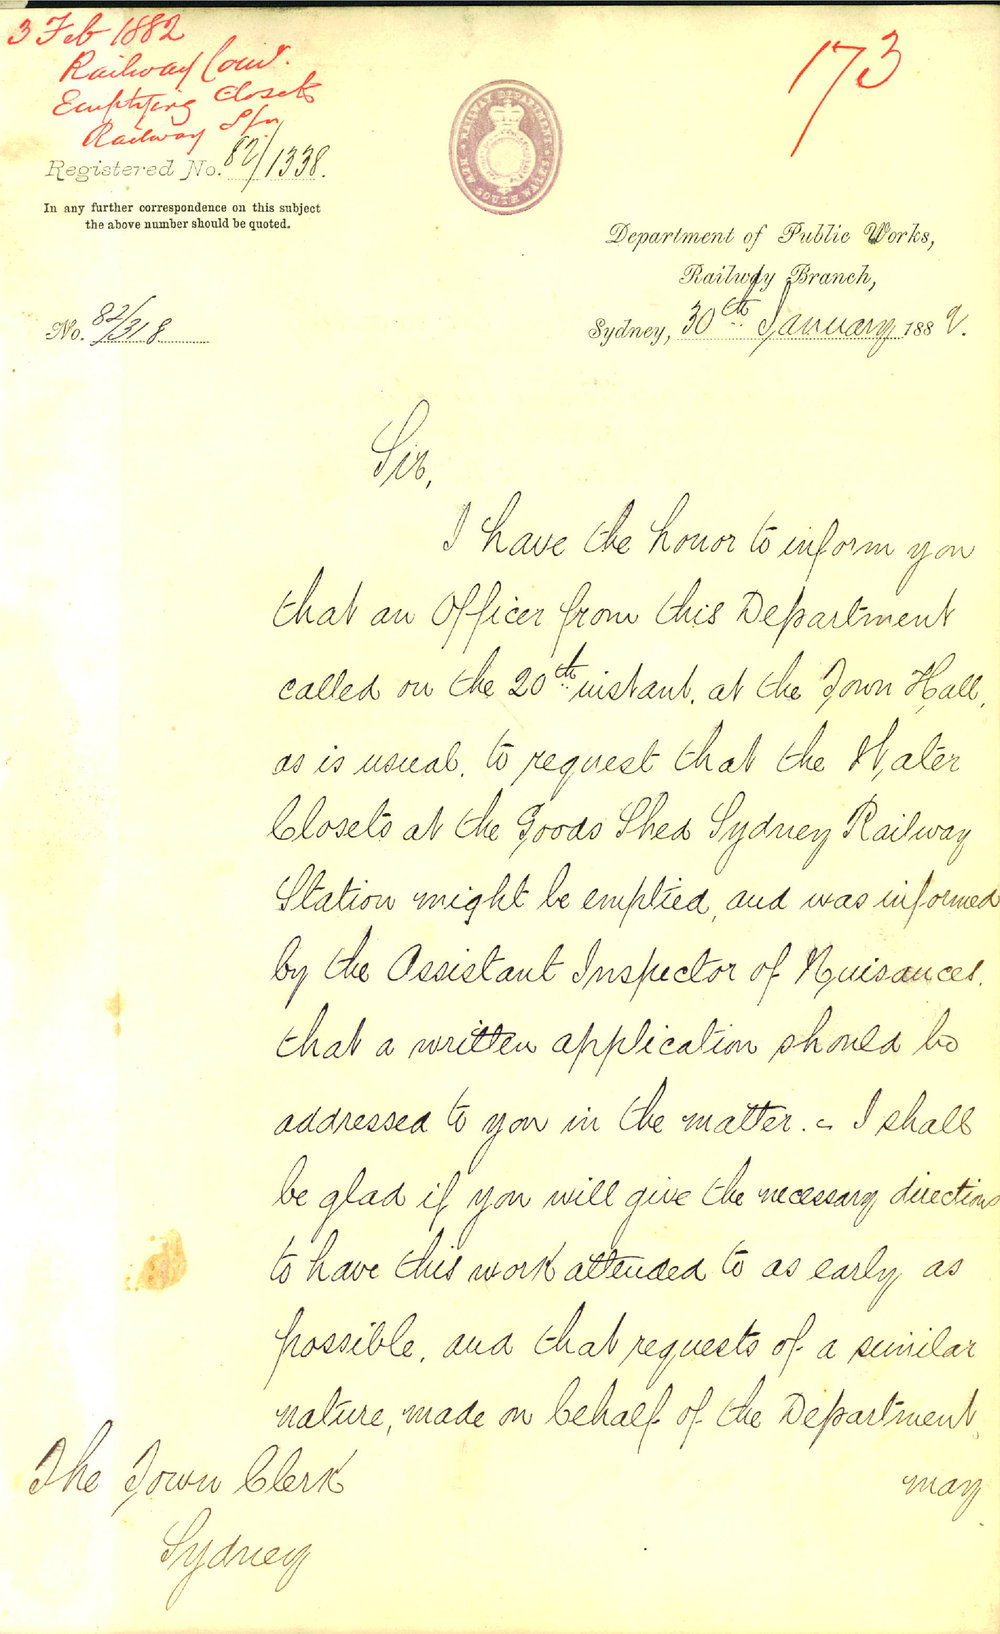 3 Feb 1882
Railway Com.
Emptying Closets
Railway Stn
173
RAILWAY DEPARTMENT
NEW SOUTH WALES
Registered No. 82/1338.
In any further correspondence on this subject
the above number should be quoted.
Department of Public Works,
Railway Branch,
No. 82/318
Sydney, 30th January 1882.
Sir,
I have the honor to inform you
that an Officer from this Department
called on the 20th instant, at the Town Hall,
as is usual, to request that the Water
Closets at the Goods Shed Sydney Railway
Station might be emptied, and was informed
by the Assistant Inspector of Nuisances,
that a written application should be
addressed to you in the matter. - I shall
be glad if you will give the necessary directions
to have this work attended to as early as
possible, and that requests of a similar
nature, made on behalf of the Department,
may
The Town Clerk
Sydney